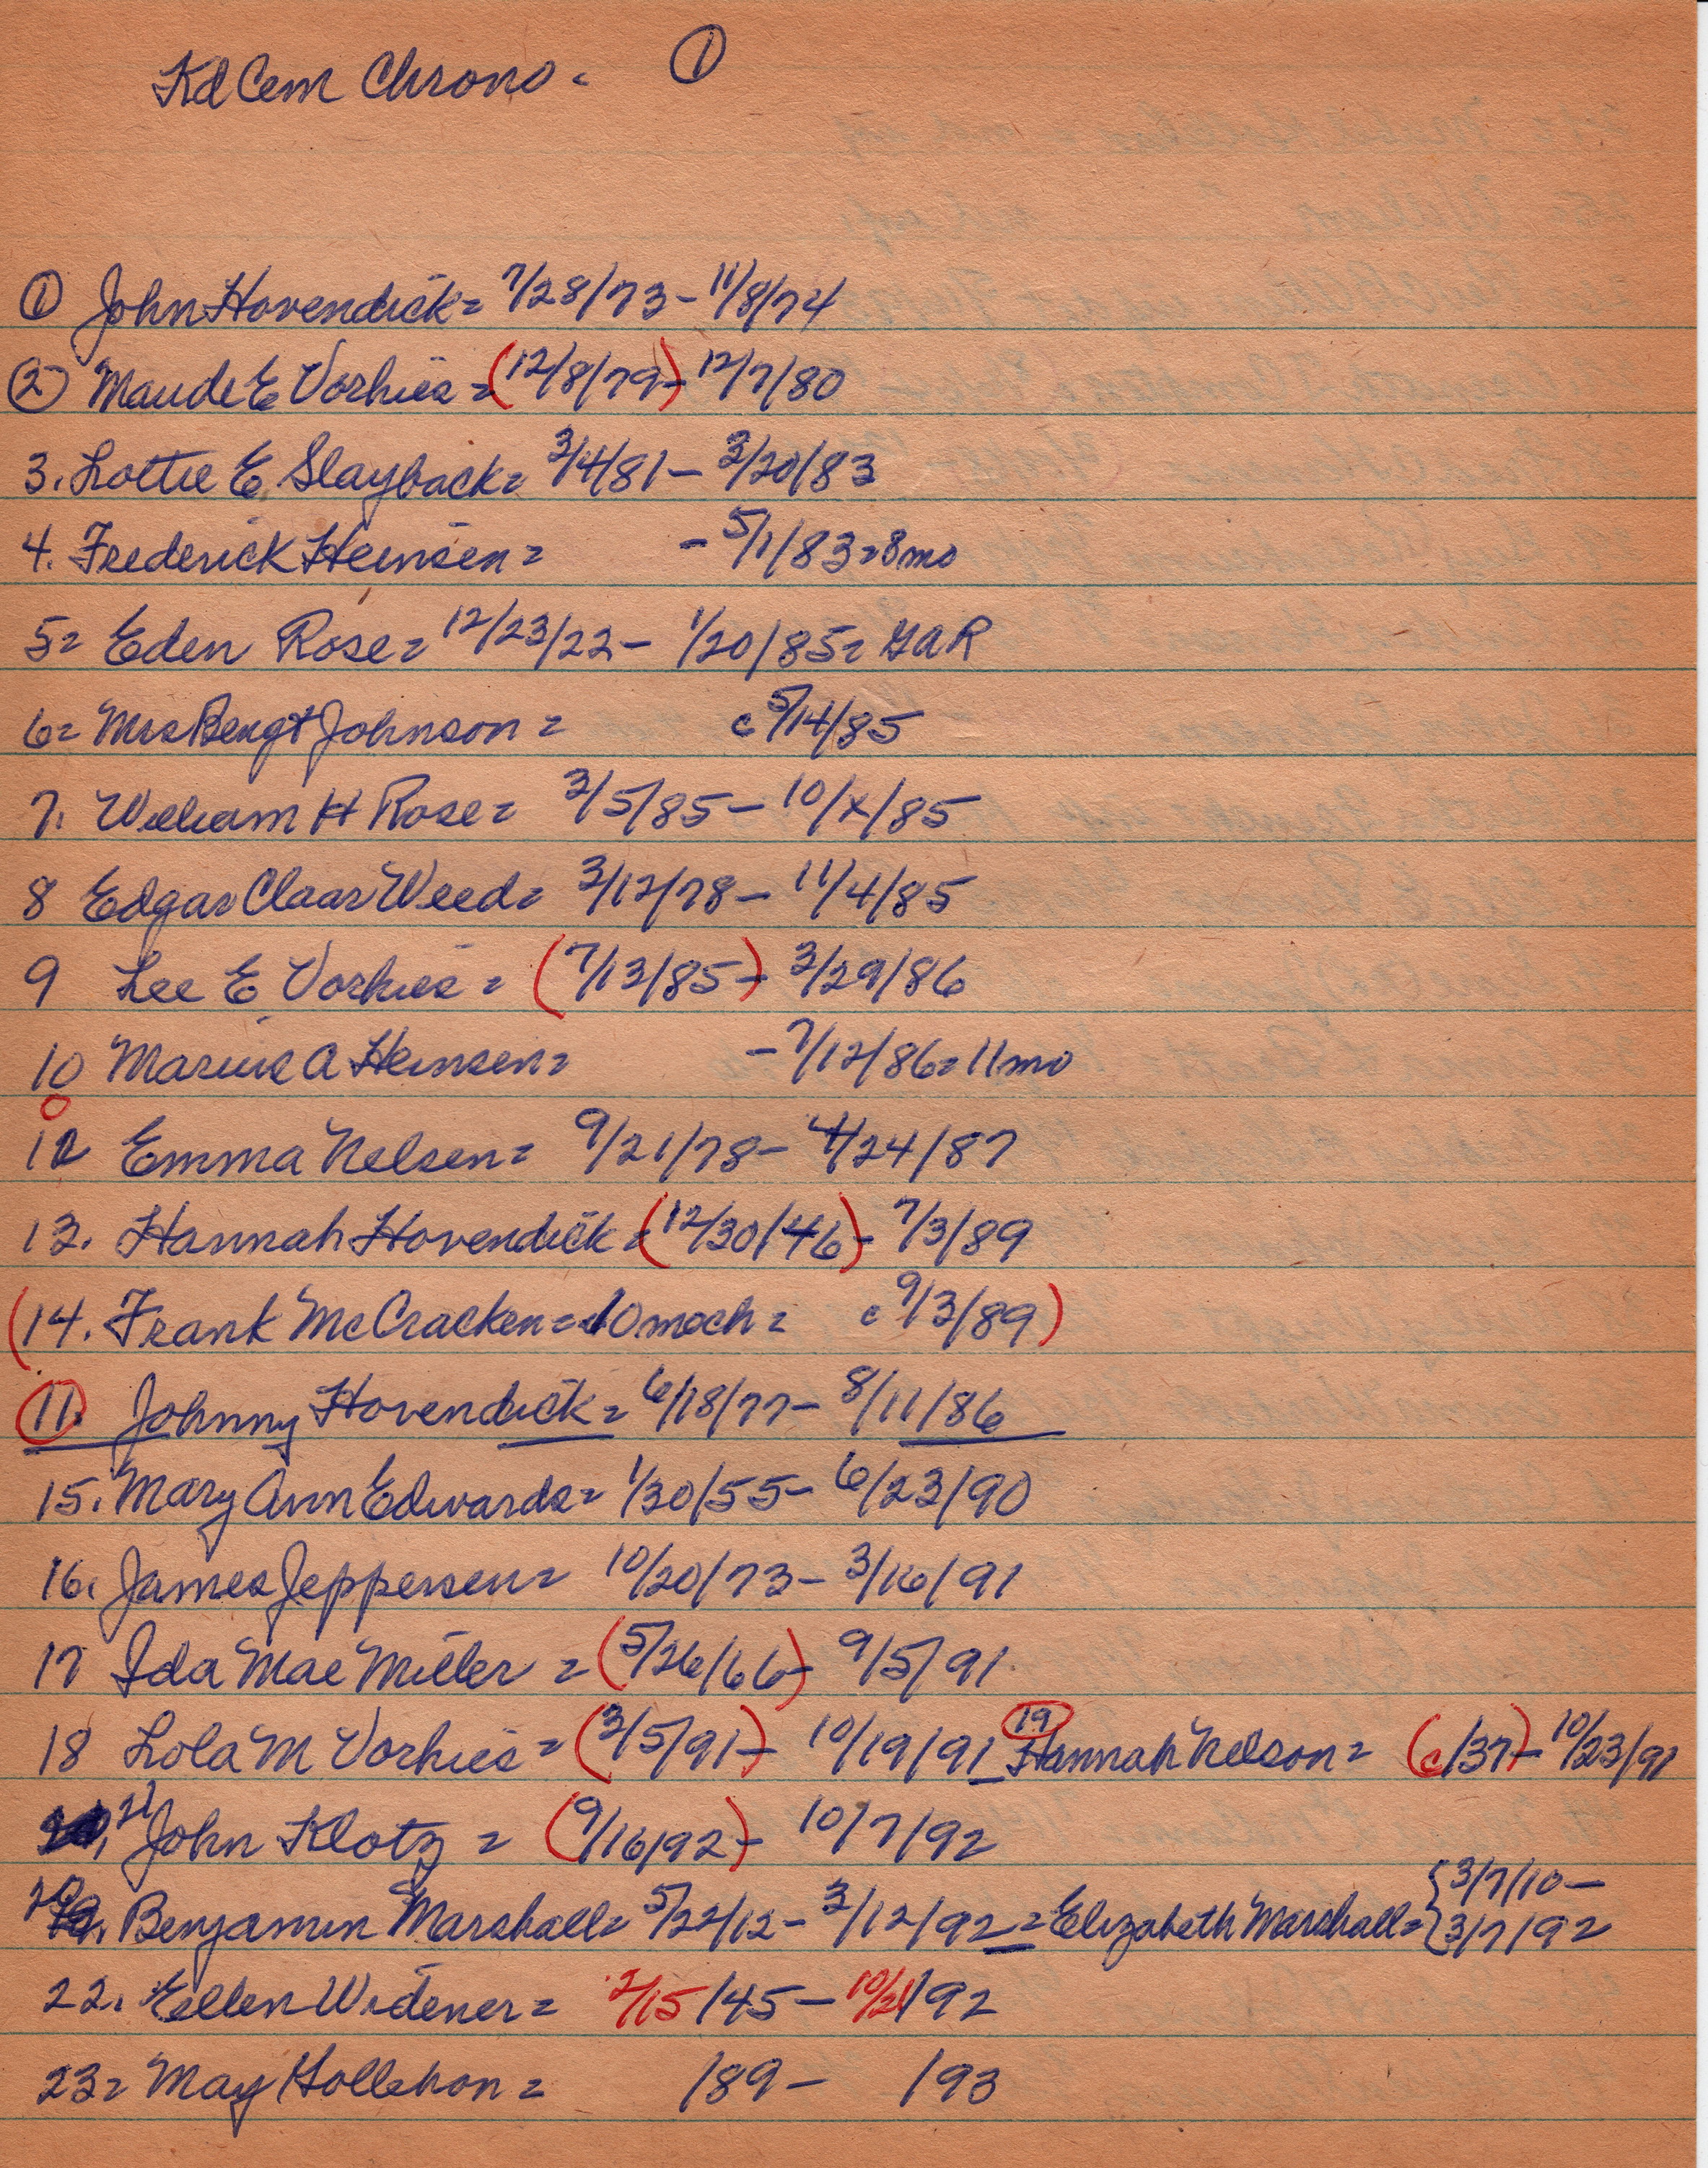 Kd Cem Chrono = ①
① John Hovendick = 7/28/73 - 11/8/74
② Maude E Vorhies = (12/8/79) - 12/7/80
3. Lottie E Slayback = 3/4/81 - 3/20/83
4. Frederick Heinsen = - 5/1/83 = 8 mo
5 = Eden Rose = 12/23/22 - 1/20/85 = GAR
6 = Mrs Bengt Johnson = c 5/14/85
7. William H Rose = 3/5/85 - 10/x/85
8 Edgar Claar Weed = 3/12/78 - 11/4/85
9 Lee E Vorhies = (7/13/85) - 3/29/86
10 Marius A Heinsen = - 7/12/86 = 11 mo
12 Emma Nelsen = 9/21/78 - 4/24/87
13. Hannah Hovendick = (12/30/46) - 7/3/89
(14. Frank McCracken = 10 mo ch = c 9/3/89)
11. Johnny Hovendick = 6/18/77 - 8/11/86
15. Mary Ann Edwards = 1/30/55 - 6/23/90
16. James Jeppersen = 10/20/73 - 3/16/91
17 Ida Mae Miller = (5/26/66) - 9/5/91
18 Lola M Vorhies = (3/5/91) - 10/19/91 19 Hannah Nelson = (c/37) - 10/23/91
21 John Klotz = (9/16/92) - 10/7/92
20. Benjamin Marshall = 5/22/12 - 3/12/92 = Elizabeth Marshall = {3/7/10 - 3/7/92
22. Eellen Widener = 2/15/45 - 10/21/92
23 = May Hollehon = /89 - /93